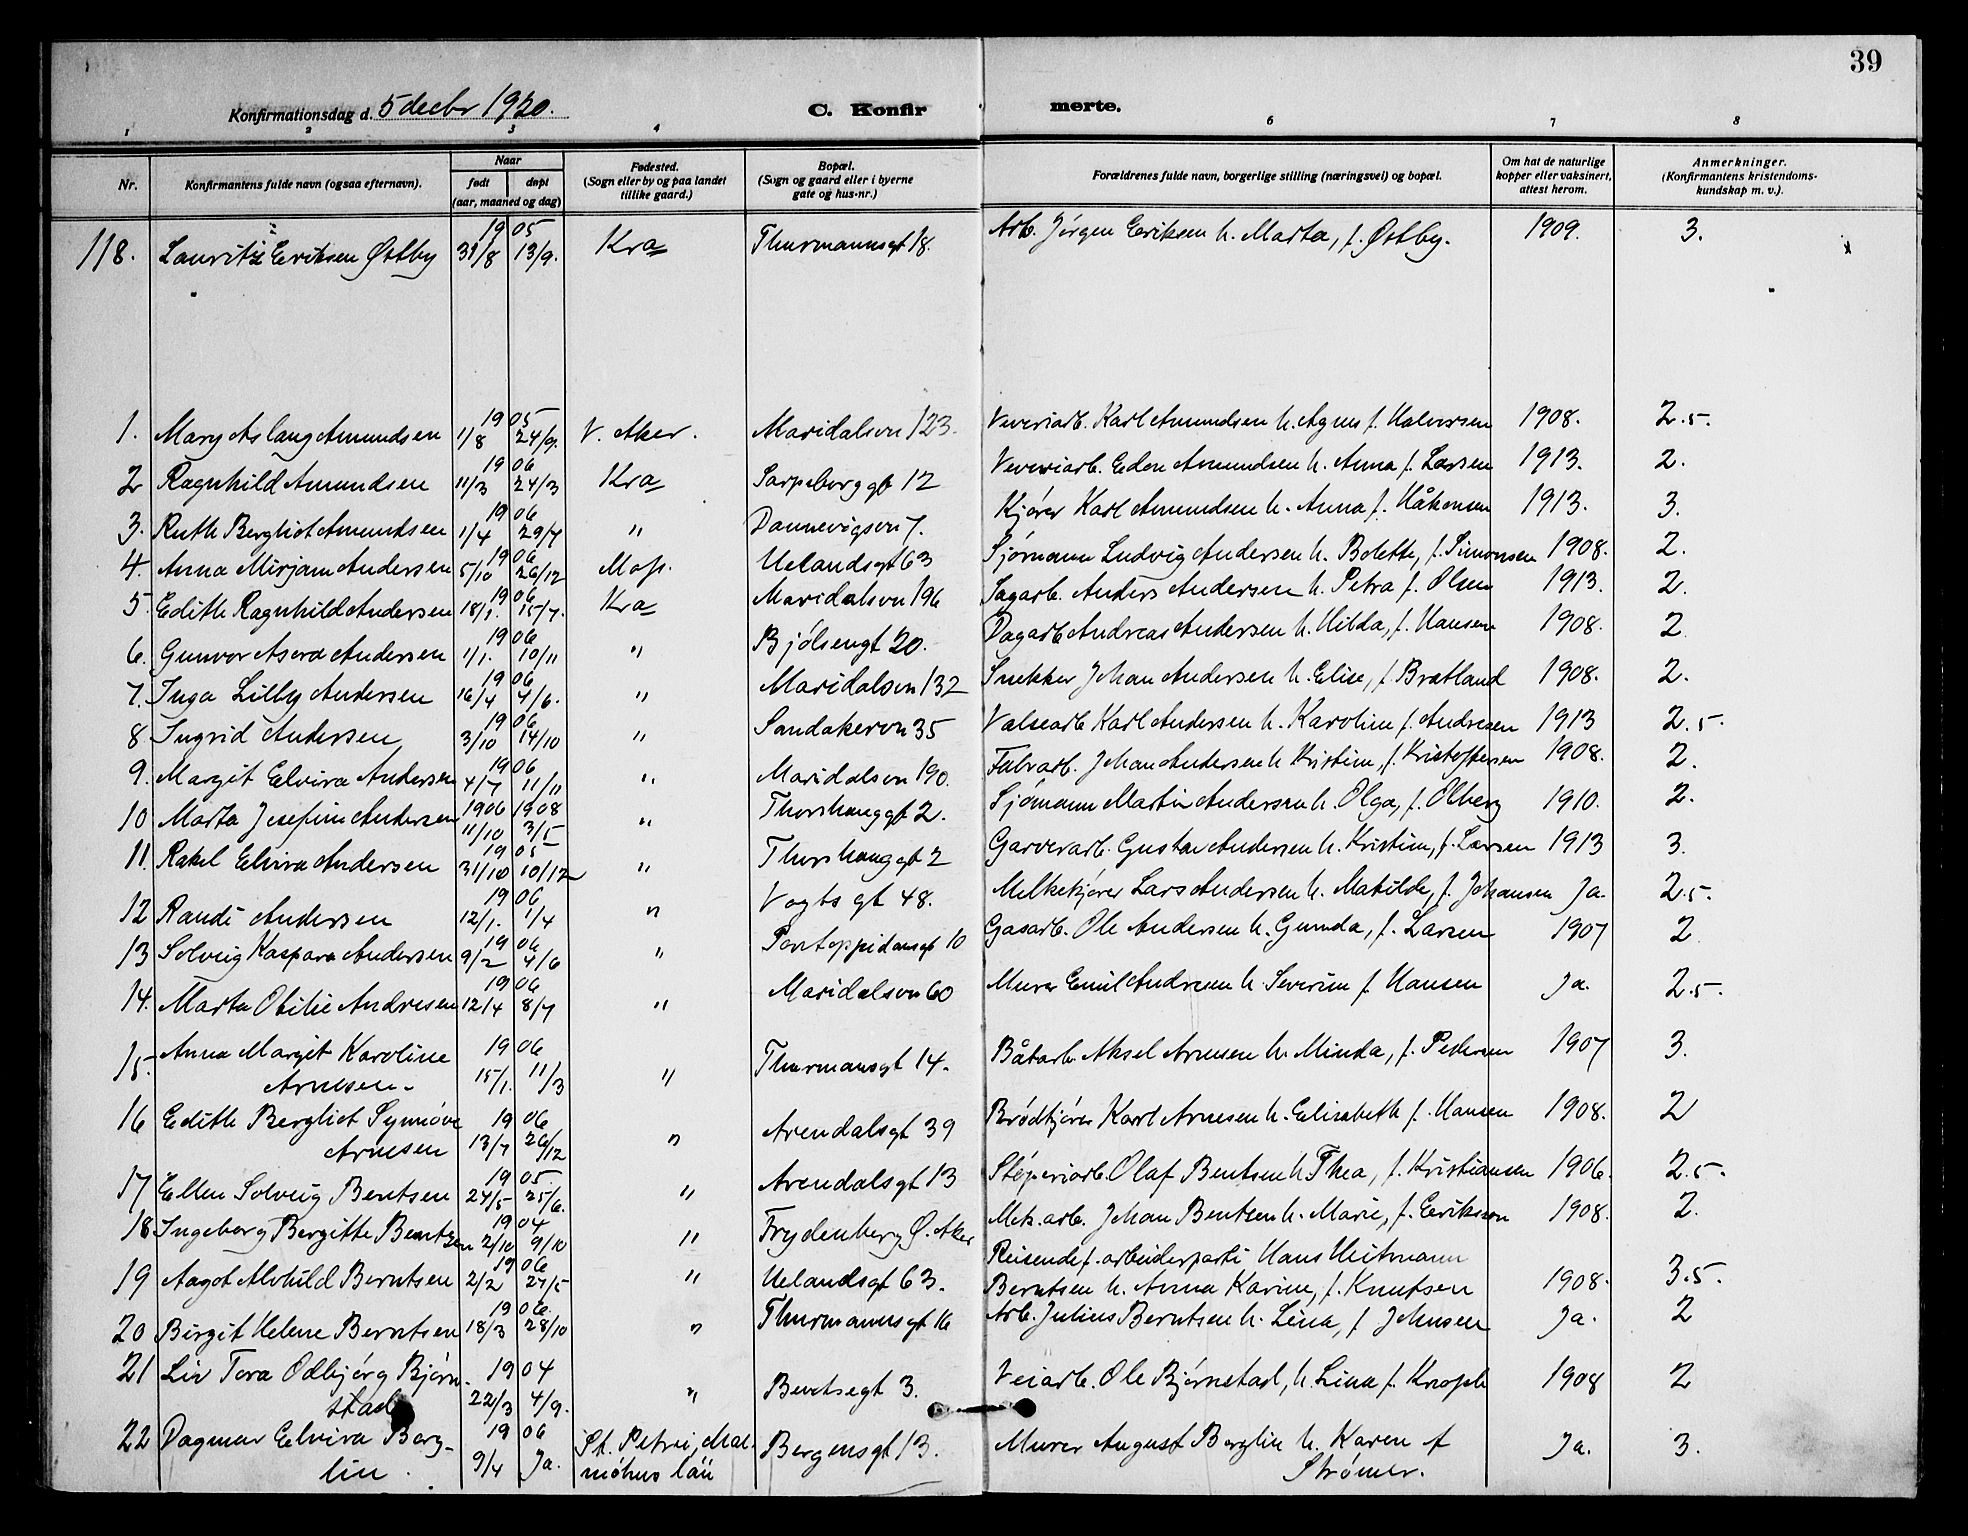 39
Konfirmationsdag d. 5 decbr 1920.
C. Konfirmerte.
1 2 3 4 6 7 8
Nr.
Konfirmantens fulde navn (ogsaa efternavn).
Naar
født
døpt
(aar, maaned og dag)
Fødested.
(Sogn eller by og paa landet
tillike gaard.)
Bopæl.
(Sogn og gaard eller i byerne
gate og hus-nr.)
Forældrenes fulde navn, borgerlige stilling (næringsvei) og bopæl.
Om hat de naturlige
kopper eller vaksinert,
attest herom.
Anmerkninger.
(Konfirmantens kristendoms-
kundskap m. v.).
118. Lauritz Eriksen Østby 1905 31/8 13/9. Kra Thurmannsgt 18. Arb. Jörgen Eriksen h. Marta, f. Østby. 1909. 3.
1. Mary Aslaug Amundsen 1905 1/8 24/9. V. Aker. Maridalsvn 123. Veveriarb. Karl Amundsen h. Agnes f. Halvorsen 1908. 2.5.
2 Ragnhild Amundsen 1906 11/3 24/3 Kra Sarpsborggt 12 Veveriarb. Edon Amundsen h. Anna f. Larsen 1913. 2.
3. Ruth Bergliot Amundsen 1906 1/4 29/7 " Dannevigsvn 7. Kjörer Karl Amundsen h. Anna f. Håkensen 1913. 3.
4. Anna Mirjam Andersen 1906 5/10 26/12 Moss. Uelandsgt 63 Sjömann Ludvig Andersen h. Bolette, f. Simonsen 1908. 2.
5. Edith Ragnhild Andersen 1906 18/1. 15/7. Kra Maridalsvn 196 Sagarb. Anders Andersen h. Petra f. Olsen 1913. 2.
6. Gunvor Asora Andersen 1906 1/1. 10/11 " Bjölsengt 20. Dagarb Andreas Andersen h. Hilda, f. Hansen 1908. 2
7. Inga Lilly Andersen 1906 16/4 4/6. " Maridalsvn 132 Snekker Johan Andersen h. Elise, f. Bratland 1908. 2.
8 Ingrid Andersen 1906 3/10 14/10 " Sandakervn 35 Valsearb Karl Andersen h. Karoline f. Andresen 1913 2.5.
9. Margit Elvira Andersen 1906 4/7 11/11 " Maridalsvn 190. Fabrarb. Johan Andersen h Kristine, f. Kristoffersen 1908. 2.
10 Marta Josefine Andersen 1906 1908 11/10 3/5 " Thorshauggt 2. Sjömann Martin Andersen h. Olga, f. Olberg 1910. 2.
11. Rakel Elvira Andersen 1905 31/10 10/12 " Thorshauggt 2 Garverarb. Gustav Andersen h. Kristine, f. Larsen 1913 3.
12 Randi Andersen 1906 12/1. 1/4 " Vogts gt 48. Melkekjörer Lars Andersen h. Matilde, f. Johansen Ja. 2.5.
13 Solveig Kaspara Andersen 1906 9/2 4/6 " Pontoppidansgt 10 Gasarb. Ole Andersen h. Gunda, f. Larsen 1907 2
14. Marta Otilie Andresen 1906 12/4 8/7 " Maridalsvn 60 Murer Emil Andresen h Severine f Hansen Ja. 2.5.
15. Anna Margit Karoline
Arnesen. 1906 15/1. 11/3 " Thurmansgt 14. Båtarb. Aksel Arnesen h. Minda, f. Pedersen 1907 3.
16 Edith Bergliot Synnöve
Arnesen 1906 13/7 26/12 " Arendalsgt 39 Brödkjörer Karl Arnesen h. Elisabeth f. Hansen 1908. 2
17 Ellen Solveig Bentsen 1905. 24/5 25/6. " Arendalsgt 13 Stöperiarb. Olaf Bentsen h Thea, f. Kristiansen 1906. 2.5.
18 Ingeborg Bergitte Bentzen 1904 2/10 9/10 " Frydenberg Ø. Aker Mek. arb. Johan Bentzen h. Marie, f. Eriksson 1908. 2.
19 Aagot Alvhild Berntsen 1906 2/2 27/5 " Uelandsgt 63. Reisende f. arbeiderparti Hans Heitmann
Berntsen h. Anna Karine, f. Knutsen 1908. 3.5.
20 Birgit Helene Berntsen 1906. 18/3 28/10 " Thurmannsgt 16 Arb. Julius Berntsen h. Lina, f Johnsen Ja. 2
21 Liv Tora Odbjörg Björn-
stad 1904 22/3 4/9. " Bentsegt 3. Veiarb. Ole Björnstad, h. Lina f. Knoph 1908 2
22 Dagmar Elvira Berg-
lin. 1906 9/4 Ja. St. Petri, Mal-
möhus län Bergensgt 13. Murer August Berglin h. Karen f
Strömer. Ja. 3.